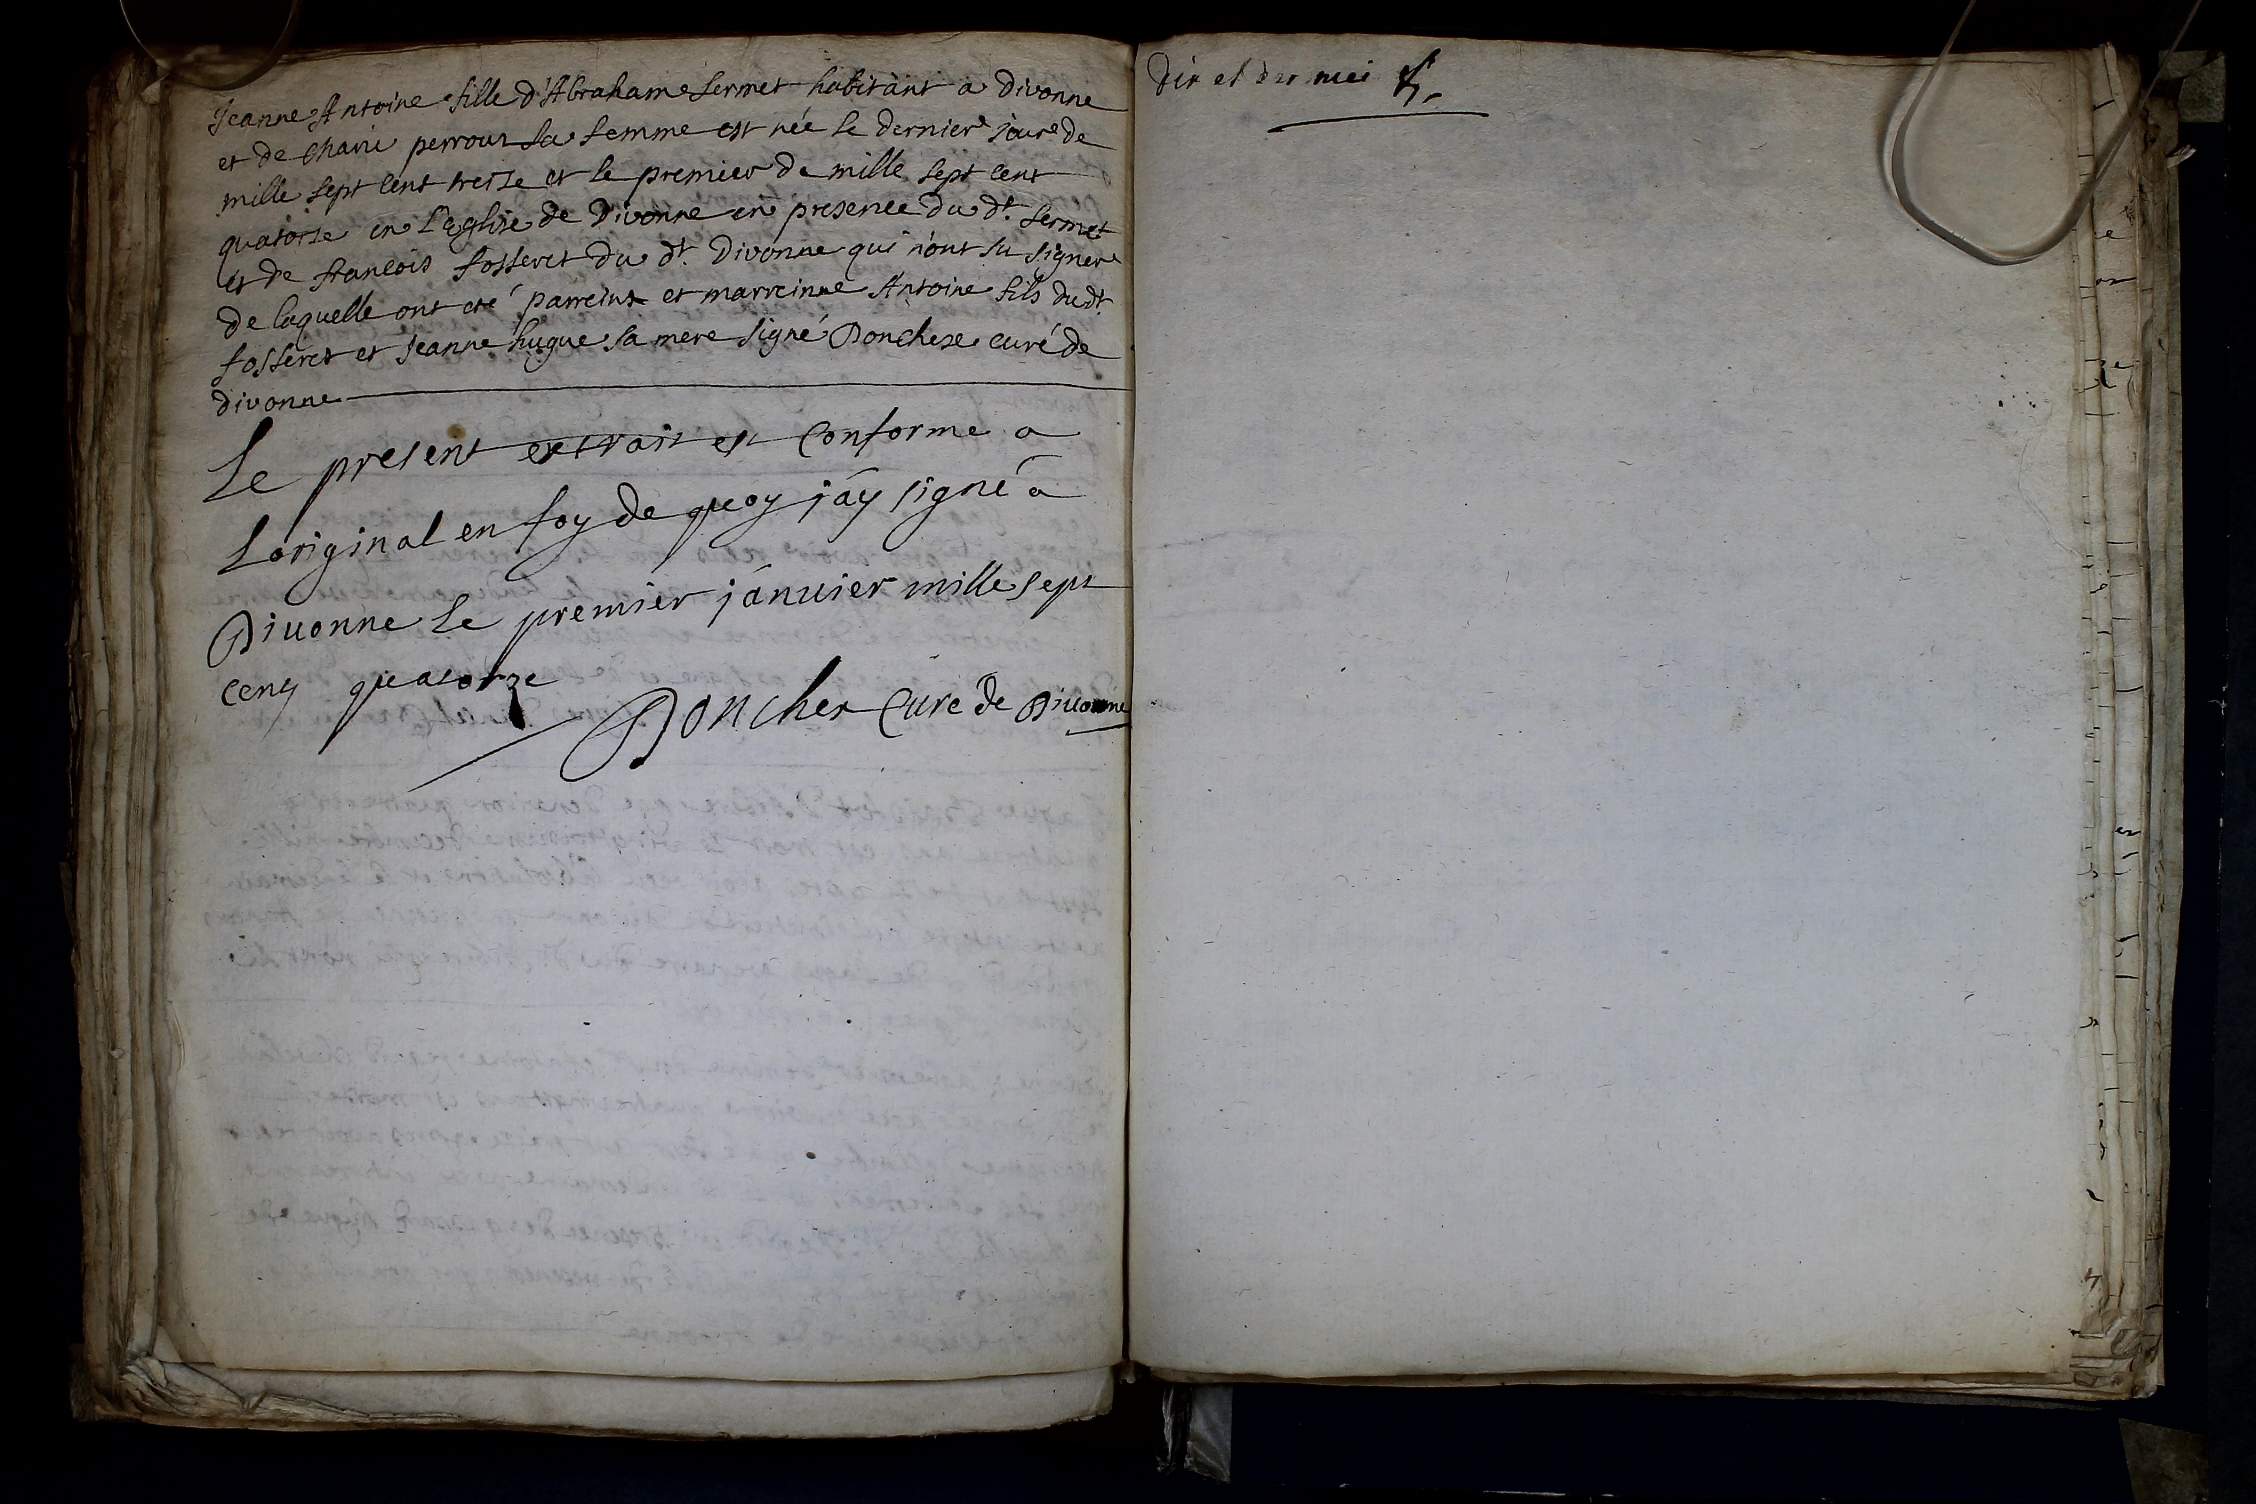 Jeanne Antoine fille d'Abraham Sermet habitant a Divonne
et de Marie perroux sa femme est née le dernier jour de
mille sept cent treize et le premier de mille sept cent
quatorze en L'eglise de Divonne en presence du dt. Sermet
et de francois fosseret du dt. Divonne qui n'ont su signer
de laquelle ont eté parreint et marreinne Antoine fils du dt.
fosseret et Jeanne hugue sa mere signé Donchex curé de
divonne
Le present extrait est Conforme a
Loriginal en foy de quoy j'áy signé a
Divonne Le premier jánuier mille sept
cent quatorze
Doncher Curé de Diuonne
dix et der